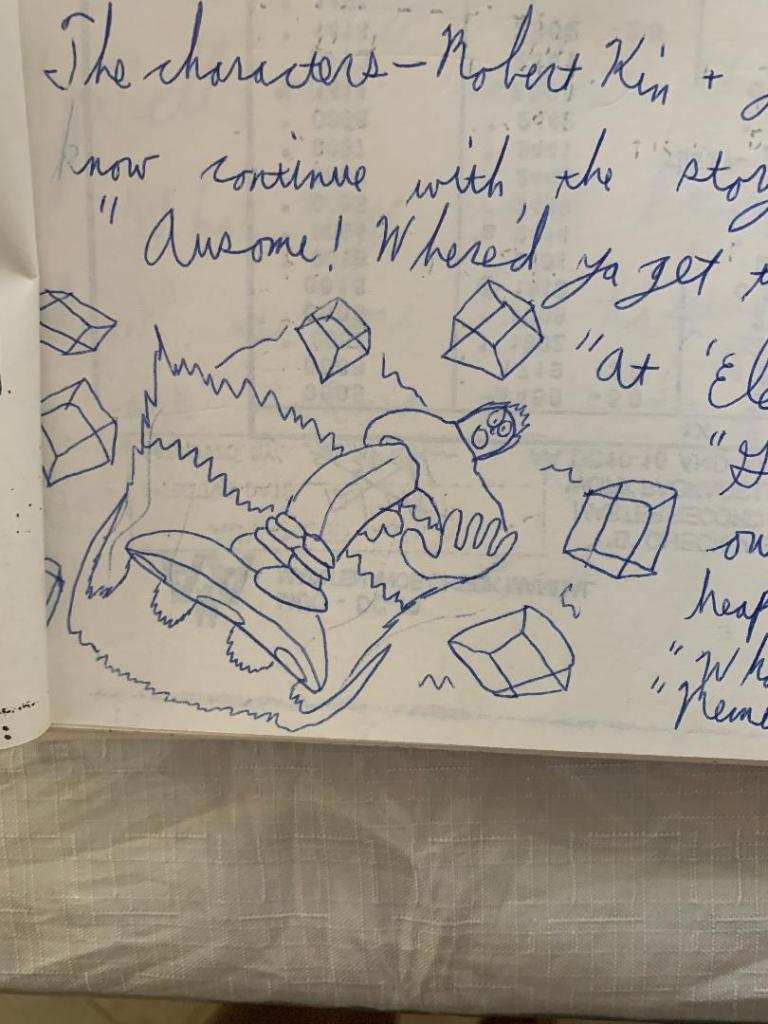 The characters — Robert Kin + y
know continue with, the story
" Ausome! Where'd ya get t
"At 'Ele
ou
heap
"Wh